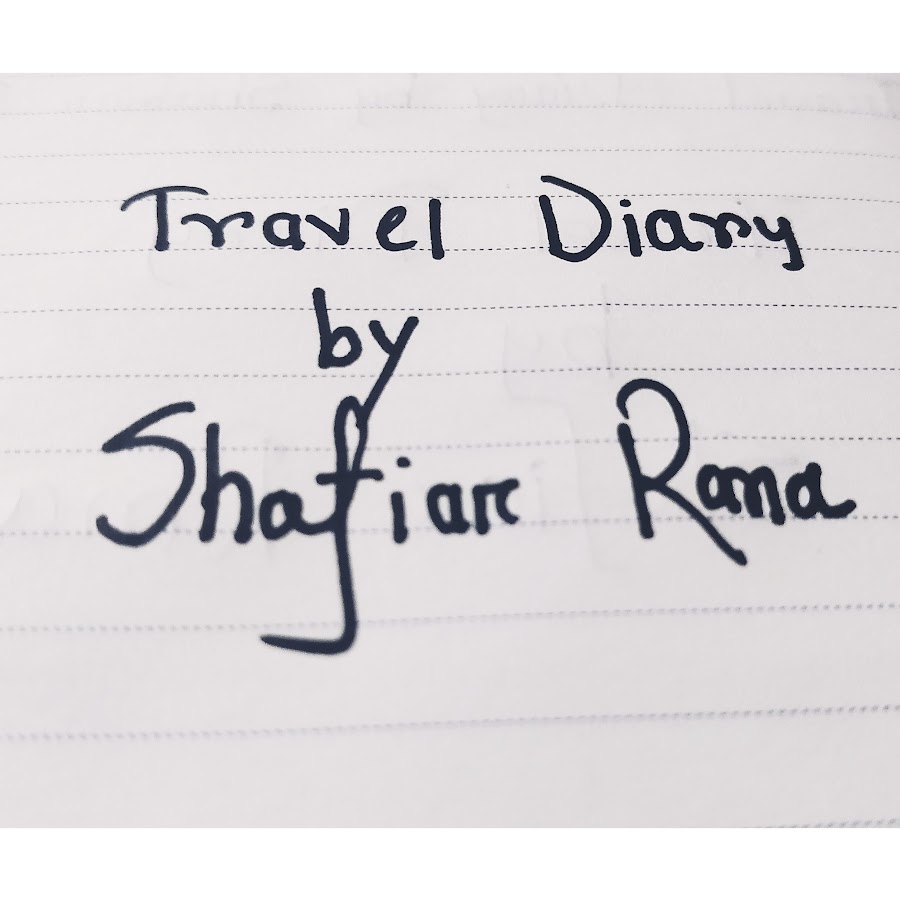 Travel Diary
by
Shafiar Rana